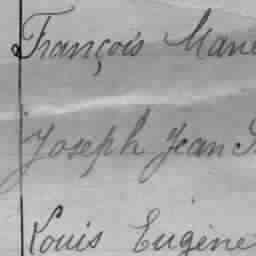 François Marie
Joseph Jean
Louis Eugène